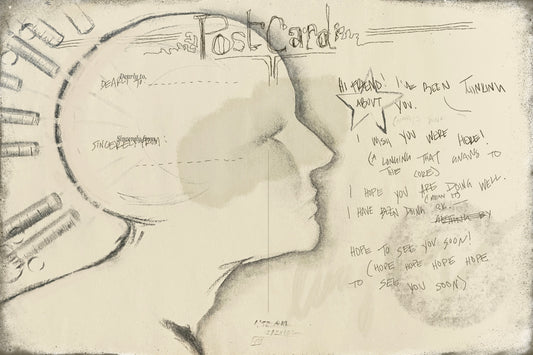 Post Card
DEARLY TO,
SINCERELY FROM,
HI FRIEND! I'VE BEEN THINKING
ABOUT YOU.
I WISH YOU WERE HERE!
(A LONGING THAT GNAWS TO
THE CORE)
I HOPE YOU ARE DOING WELL.
(I MEAN IT)
I HAVE BEEN DOING
HOPE TO SEE YOU SOON!
(HOPE HOPE HOPE HOPE
TO SEE YOU SOON)